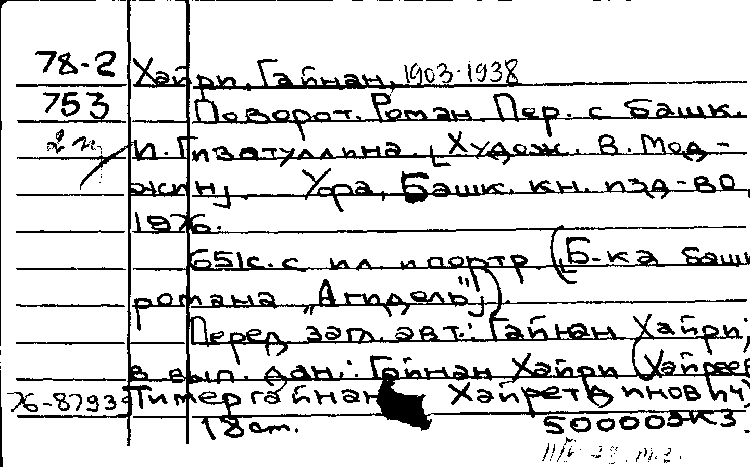 78-2 Хайри, Гайнан, 1903-1938
753 Поворот. Роман. Пер. с башк.
2н И. Гизатуллина. [Худож. В. Мод-
жин]. Уфа, Башк. кн. изд-во,
1976.
651с. с ил. и портр. ([Б-ка башк
романа „Агидель"]).
Перед загл. авт.: Гайнан Хайри;
в вып. дан.: Гайнан Хайри (Хайреев
76-87939 Тимергайнан Хайретдинович
18 см. 50000экз.